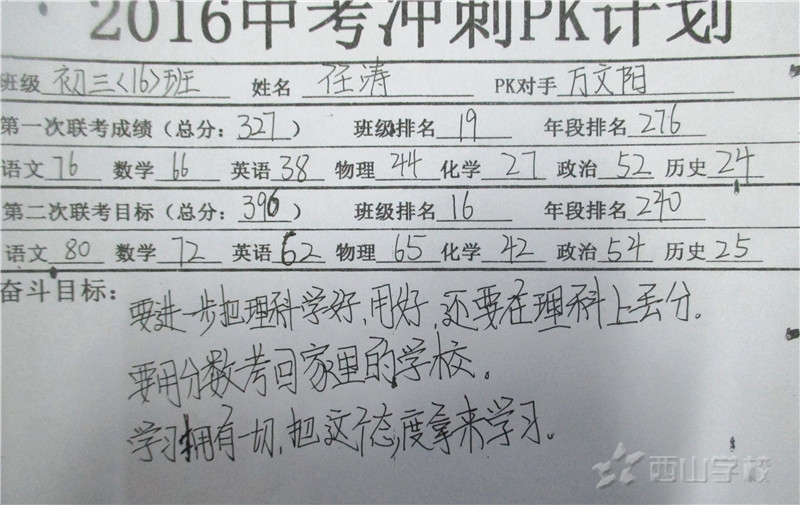 2016中考冲刺PK计划
班级 初三<16>班 姓名 任涛 PK对手 万文阳
第一次联考成绩（总分：327） 班级排名 19 年段排名 276
语文 76 数学 66 英语 38 物理 44 化学 27 政治 52 历史 24
第二次联考目标（总分：390） 班级排名 16 年段排名 240
语文 80 数学 72 英语 62 物理 65 化学 42 政治 54 历史 25
奋斗目标：
要进一步把理科学好,用好,还要在理科上丢分。
要用分数考回家里的学校。
学习拥有一切,把这个态度拿来学习。
西山学校